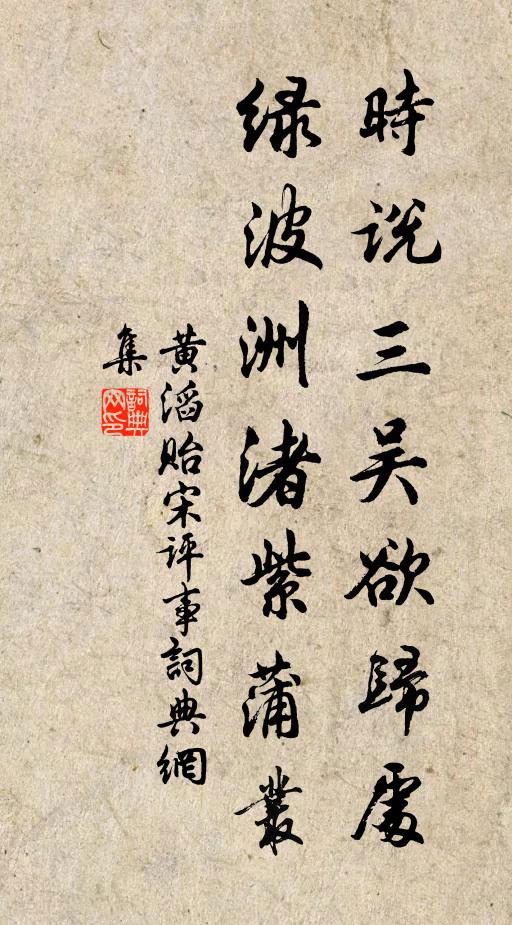 時說三吴欲歸處
緑波洲渚紫蒲叢
黄滔貽宋評事詞典網
集
詞典网印